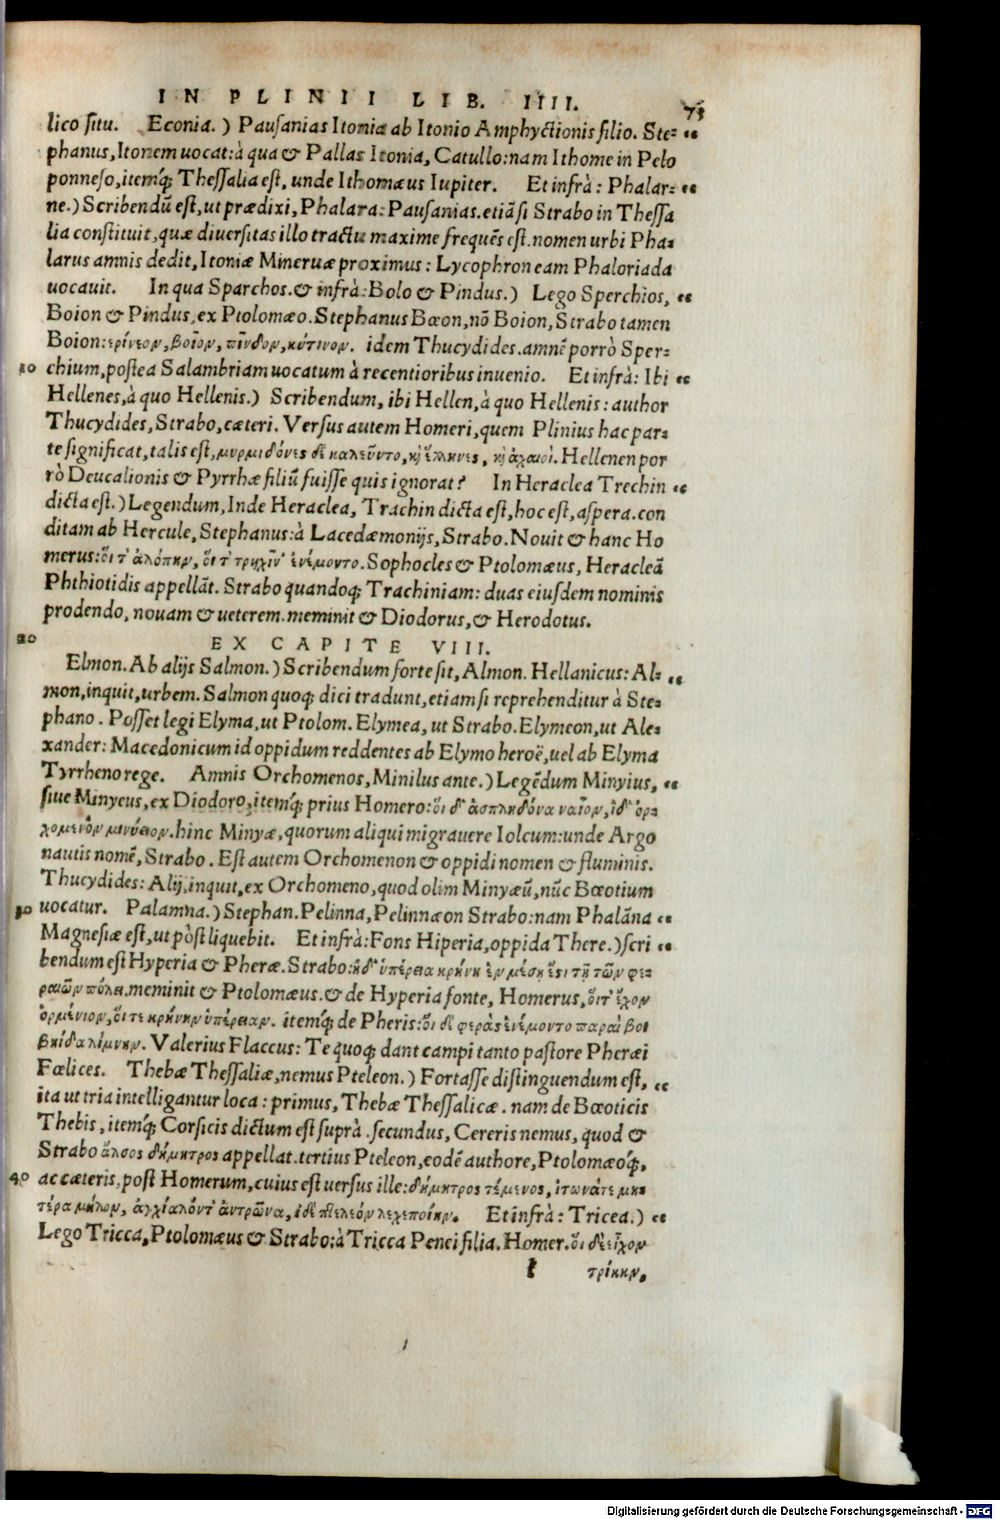 IN PLINII LIB. IIII. 73
lico situ. Econia.) Pausanias Itonia ab Itonio Amphyctionis filio. Ste= „
phanus, Itonem uocat: à qua & Pallas Itonia, Catullo: nam Ithome in Pelo
ponneso, itemq́; Thessalia est, unde Ithomæus Iupiter. Et infrà: Phalar= „
ne.) Scribendū est, ut prædixi, Phalara: Pausanias. etiā si Strabo in Thessa
lia constituit, quæ diuersitas illo tractu maxime frequēs est. nomen urbi Pha=
larus amnis dedit, Itoniæ Mineruæ proximus: Lycophron eam Phaloriada
uocauit. In qua Sparchos. & infrà: Bolo & Pindus.) Lego Sperchios, „
Boion & Pindus, ex Ptolomæo. Stephanus Bœon, nō Boion, Strabo tamen
Boion: ἐρίνεον, βοῖον, πῖνδον, κύτινον. idem Thucydides. amnē porrò Sper=
10 chium, postea Salambriam uocatum à recentioribus inuenio. Et infrà: Ibi „
Hellenes, à quo Hellenis.) Scribendum, ibi Hellen, à quo Hellenis: author
Thucydides, Strabo, cæteri. Versus autem Homeri, quem Plinius hac par=
te significat, talis est, μυρμιδόνες δὲ καλεῦντο, κỳ ἕλληνες, κỳ ἀχαιοί. Hellenen por
rò Deucalionis & Pyrrhæ filiū fuisse quis ignorat? In Heraclea Trechin „
dicta est.) Legendum, Inde Heraclea, Trachin dicta est, hoc est, aspera. con
ditam ab Hercule, Stephanus: à Lacedæmonijs, Strabo. Nouit & hanc Ho
merus: οἵ τ' ἀλόπην, οἵ τ' τρηχῖν' ἐνέμοντο. Sophocles & Ptolomæus, Heracleā
Phthiotidis appellāt. Strabo quandoq; Trachiniam: duas eiusdem nominis
prodendo, nouam & ueterem. meminit & Diodorus, & Herodotus.
20 EX CAPITE VIII.
Elmon. Ab alijs Salmon.) Scribendum forte sit, Almon. Hellanicus: Al= „
mon, inquit, urbem. Salmon quoq; dici tradunt, etiam si reprehenditur à Ste=
phano. Posset legi Elyma, ut Ptolom. Elymea, ut Strabo. Elymeon, ut Ale=
xander: Macedonicum id oppidum reddentes ab Elymo heroë, uel ab Elyma
Tyrrheno rege. Amnis Orchomenos, Minilus ante.) Legēdum Minyius, „
siue Minyeus, ex Diodoro, itemq́; prius Homero: οἵ δ' ἀσπληδόνα ναῖον, ἰδ' ὀρ=
χομενὸν μινύειον. hinc Minyæ, quorum aliqui migrauere Iolcum: unde Argo
nautis nomē, Strabo. Est autem Orchomenon & oppidi nomen & fluminis.
Thucydides: Alij, inquit, ex Orchomeno, quod olim Minyæū, nūc Bœotium
30 uocatur. Palamna.) Stephan. Pelinna, Pelinnæon Strabo: nam Phalāna „
Magnesiæ est, ut pòst liquebit. Et infrà: Fons Hiperia, oppida There.) scri „
bendum est Hyperia & Pheræ. Strabo: ἡ δ' ὑπέρεια κρήνη ἐν μέσῃ ἐςὶ τῇ τῶν φε=
ραιῶν πόλει. meminit & Ptolomæus. & de Hyperia fonte, Homerus, οἵτ' ἔχον
ὀρμένιον, οἵ τε κρήνην ὑπέρειαν. itemq́; de Pheris: οἵ δὲ φερὰς ἐνέμοντο παραὶ βοι
βηίδα λίμνην. Valerius Flaccus: Te quoq; dant campi tanto pastore Pheræi
Fœlices. Thebæ Thessaliæ, nemus Pteleon.) Fortasse distinguendum est, „
ita ut tria intelligantur loca: primus, Thebæ Thessalicæ. nam de Bœoticis
Thebis, itemq́; Corsicis dictum est suprà. secundus, Cereris nemus, quod &
Strabo ἄλσος δήμητρος appellat. tertius Pteleon, eodē authore, Ptolomæoq́;,
40 ac cæteris, post Homerum, cuius est uersus ille: δήμητρος τέμενος, ἰτωνάτε μη=
τέρα μήλων, ἀγχίαλόντ' ἀντρῶνα, ἰδὲ πτελεὸν λεχεποίην. Et infrà: Tricea.) „
Lego Tricca, Ptolomæus & Strabo: à Tricca Penei filia. Homer. οἵ δ' εἶχον
t τρίκκην,
Digitalisierung gefördert durch die Deutsche Forschungsgemeinschaft - DFG